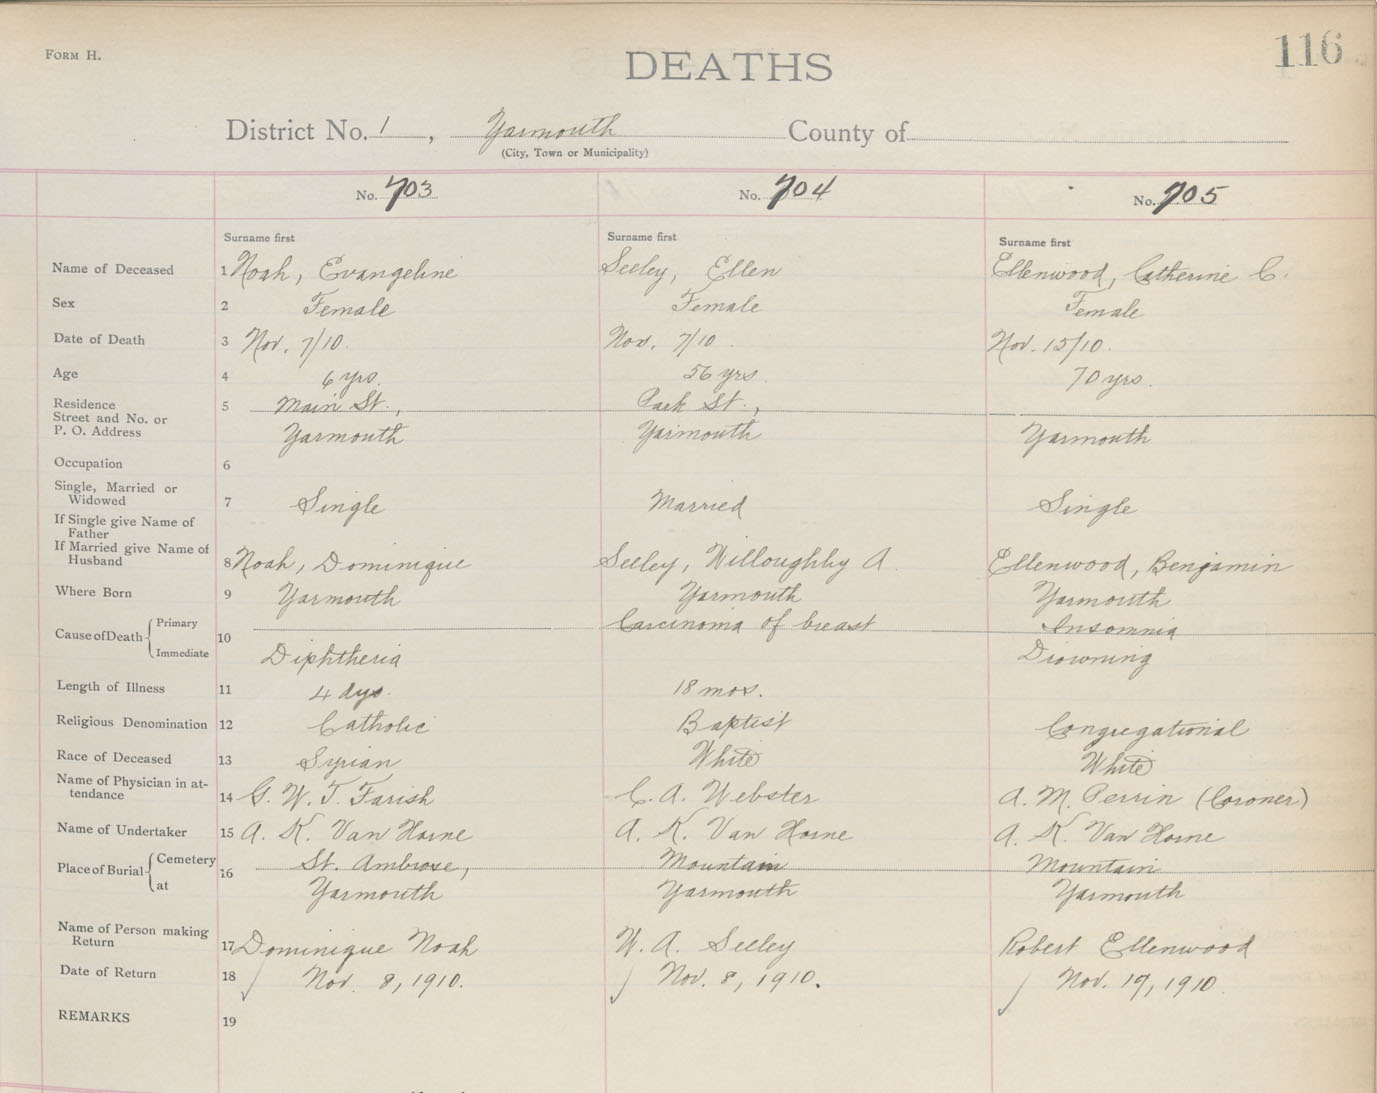 Form H.
116
DEATHS
District No. 1, Yarmouth County of
(City, Town or Municipality)
No. 703 No. 704 No. 705
Surname first Surname first Surname first
Name of Deceased 1 Noah, Evangeline Seeley, Ellen Ellenwood, Catherine C.
Sex 2 Female Female Female
Date of Death 3 Nov. 7/10. Nov. 7/10 Nov. 15/10.
Age 4 6 yrs. 56 yrs. 70 yrs.
Residence 5 Main St., Park St.,
Street and No. or
P. O. Address Yarmouth Yarmouth Yarmouth
Occupation 6
Single, Married or
Widowed 7 Single Married Single
If Single give Name of
Father
If Married give Name of
Husband 8 Noah, Dominique Seeley, Willoughby A. Ellenwood, Benjamin
Where Born 9 Yarmouth Yarmouth Yarmouth
Cause of Death Primary 10 Carcinoma of breast Insomnia
Immediate Diphtheria Drowning
Length of Illness 11 4 dys. 18 mos.
Religious Denomination 12 Catholic Baptist Congregational
Race of Deceased 13 Syrian White White
Name of Physician in at-
tendance 14 G. W. T. Farish C. A. Webster A. M. Perrin (Coroner)
Name of Undertaker 15 A. K. Van Horne A. K. Van Horne A. K. Van Horne
Place of Burial Cemetery 16 St. Ambrose, Mountain Mountain
at Yarmouth Yarmouth Yarmouth
Name of Person making
Return 17 Dominique Noah W. A. Seeley Robert Ellenwood
Date of Return 18 Nov. 8, 1910. Nov. 8, 1910. Nov. 17, 1910.
REMARKS 19